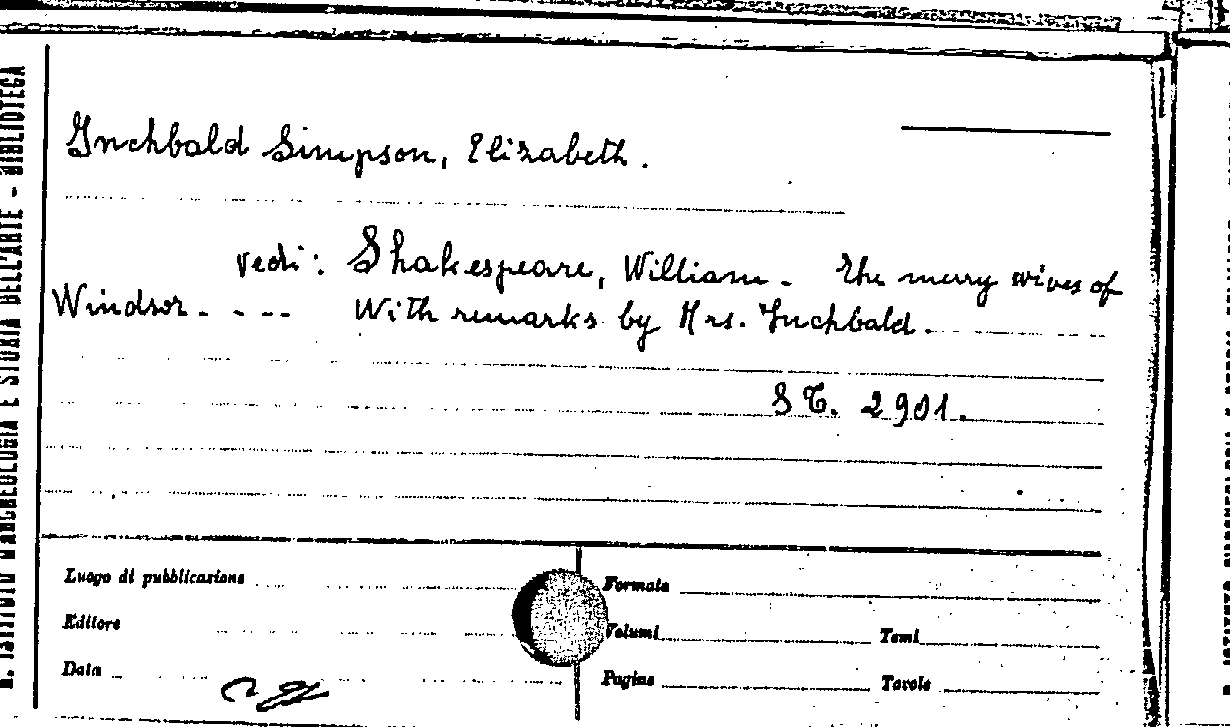 R. ISTITUTO D'ARCHEOLOGIA E STORIA DELL'ARTE - BIBLIOTECA
Inchbald Simpson, Elizabeth.
vedi: Shakespeare, William - The merry wives of
Windsor. - - - With remarks by Mrs. Inchbald.
ST. 2901.
Luogo di pubblicazione
Formato
Editore
Volumi Tomi
Data
Pagine Tavole